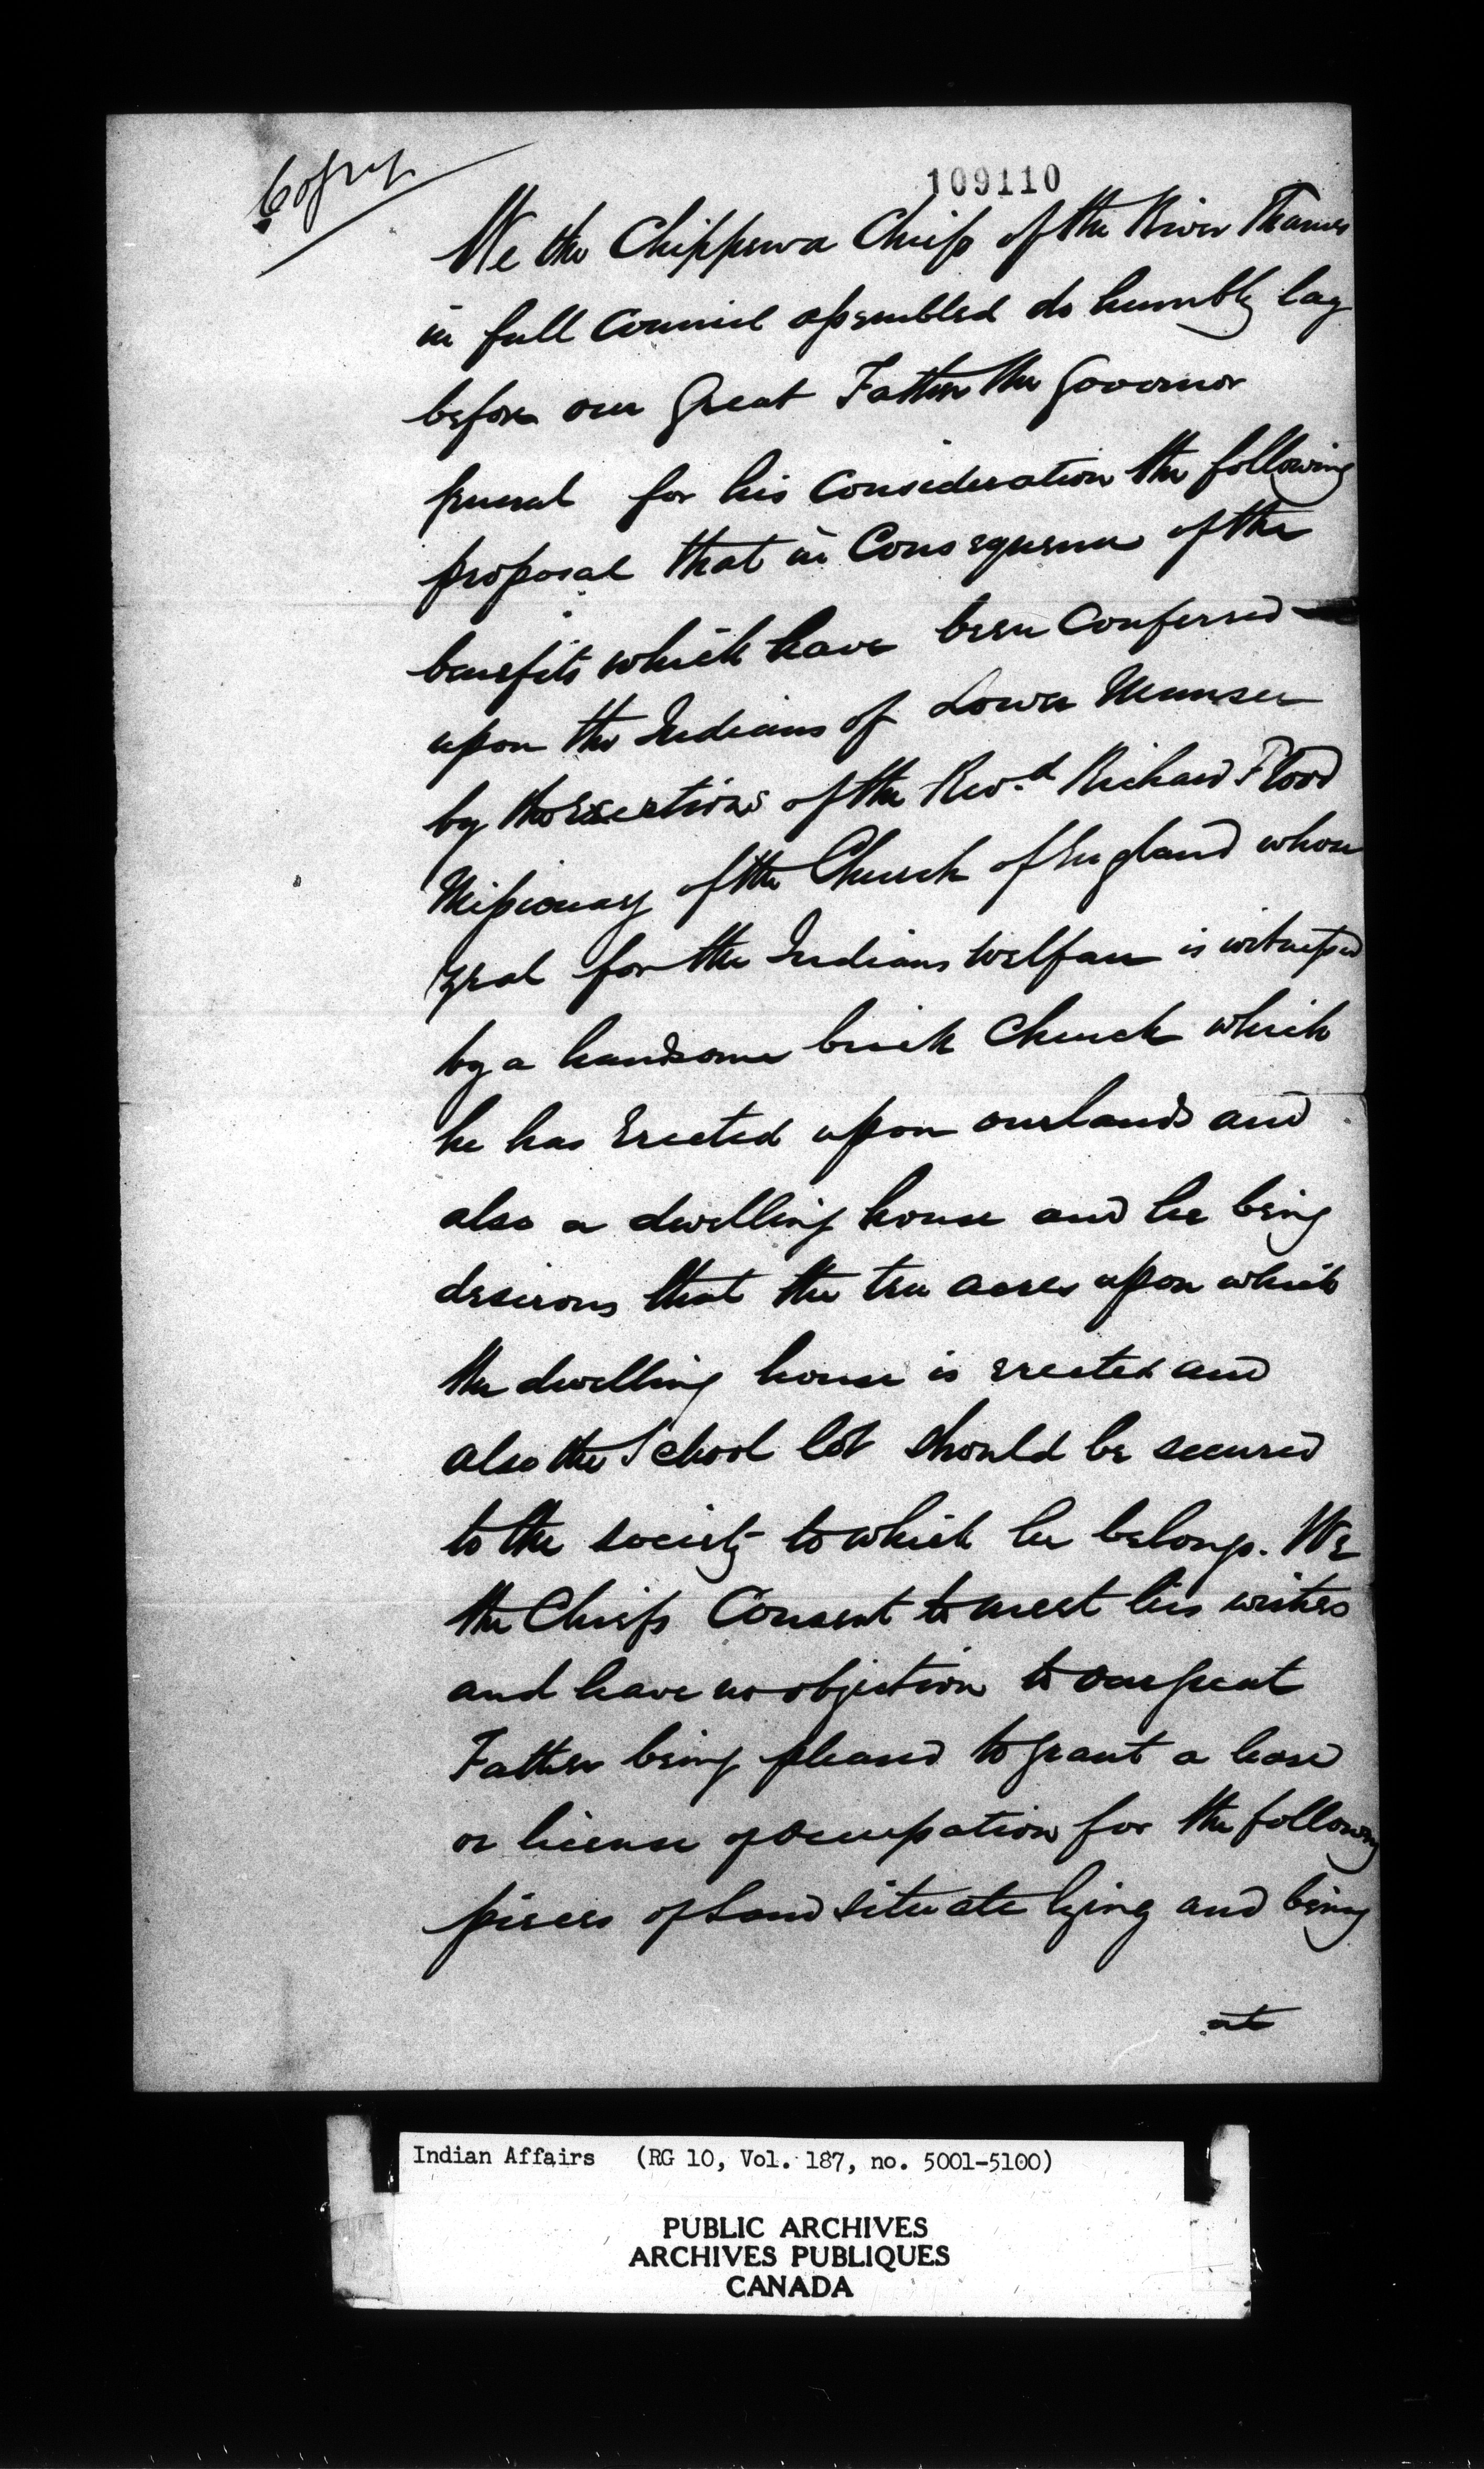 Copy
109110
We the Chippewa Chiefs of the River Thames
in full Council assembled do humbly lay
before our Great Father the Governor
General for his Consideration the following
proposal that in Consequence of the
benefits which have been Conferred
upon the Indians of Lower Munsee
by the Exertions of the Revd. Richard Flood
Missionary of the Church of England whose
zeal for the Indians Welfare is witnessed
by a handsome brick Church which
he has Erected upon our lands and
also a dwelling house and he being
desirous that the ten acres upon which
the dwelling house is erected and
also the School lot should be secured
to the society to which he belongs. We
the Chiefs Consent to meet his wishes
and have no objection to our great
Father being pleased to grant a lease
or license of Occupation for the following
pieces of Land situate lying and being
at
Indian Affairs (RG 10, Vol. 187, no. 5001-5100)
PUBLIC ARCHIVES
ARCHIVES PUBLIQUES
CANADA